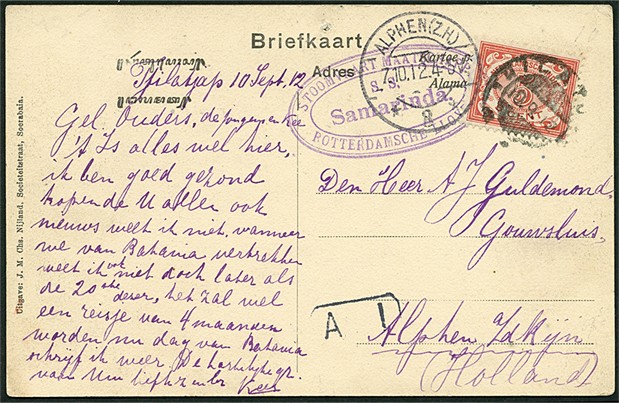 Briefkaart
Adres
Kartoe p.
Alamat
Tjilatjap 10 Sept. 12
Gel. Ouders, de jongens en Kee
't Is alles wel hier,
ik ben goed gezond
hopende U allen ook
nieuws weet ik niet, wanneer
we van Batavia vertrekken
weet ik ook niet doch later als
de 20ste dezer, het zal wel
een reisje van 4 maanden
worden nu dag van Batavia
schrijf ik weer. De hartelijke gr.
van Uw liefh. Kees
STOOMVAART MAAT
S.S.
Samarinda
ROTTERDAMSCHE LLOYD
ALPHEN (ZH)
7.10.12.4-5
Den Heer A J Guldemond,
Gouwsluis,
Alphen a/d Rijn
Holland
A I
Uitgave: J. M. Chs. Nijland, Societeitstraat, Soerabaia.